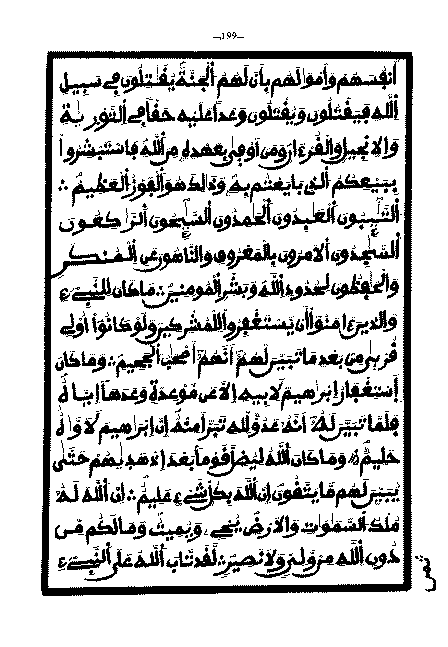 —199—
أنفسهم وأموالهم بأن لهم الجنة يقتلون في سبيل
الله فيقتلون ويقتلون وعدا عليه حقا في التورية
والانجيل والقرءان ومن أوفى بعهده من الله فاستبشروا
ببيعكم الذي بايعتم به وذلك هو الفوز العظيم ∴
التئبون العبدون الحمدون السئحون الركعون
السجدون الامرون بالمعروف والناهون عن المنكر
والحفظون لحدود الله وبشر المومنين ∴ ما كان للنبيء
والذين ءامنوا أن يستغفروا للمشركين ولو كانوا أولي
قربى من بعد ما تبين لهم أنهم أصحب الجحيم ∴ وما كان
إستغفار إبرهيم لابيه إلا عن موعدة وعدها إياه
فلما تبين له أنه عدو لله تبرأ منه إن إبرهيم لاواه
حليم ∴ وما كان الله ليضل قوما بعد إذ هديهم حتى
يبين لهم ما يتقون إن الله بكل شيء عليم ∴ إن الله له
ملك السموات والارض يحيي ويميت وما لكم من
دون الله من ولي ولا نصير ∴ لقد تاب الله على النبيء